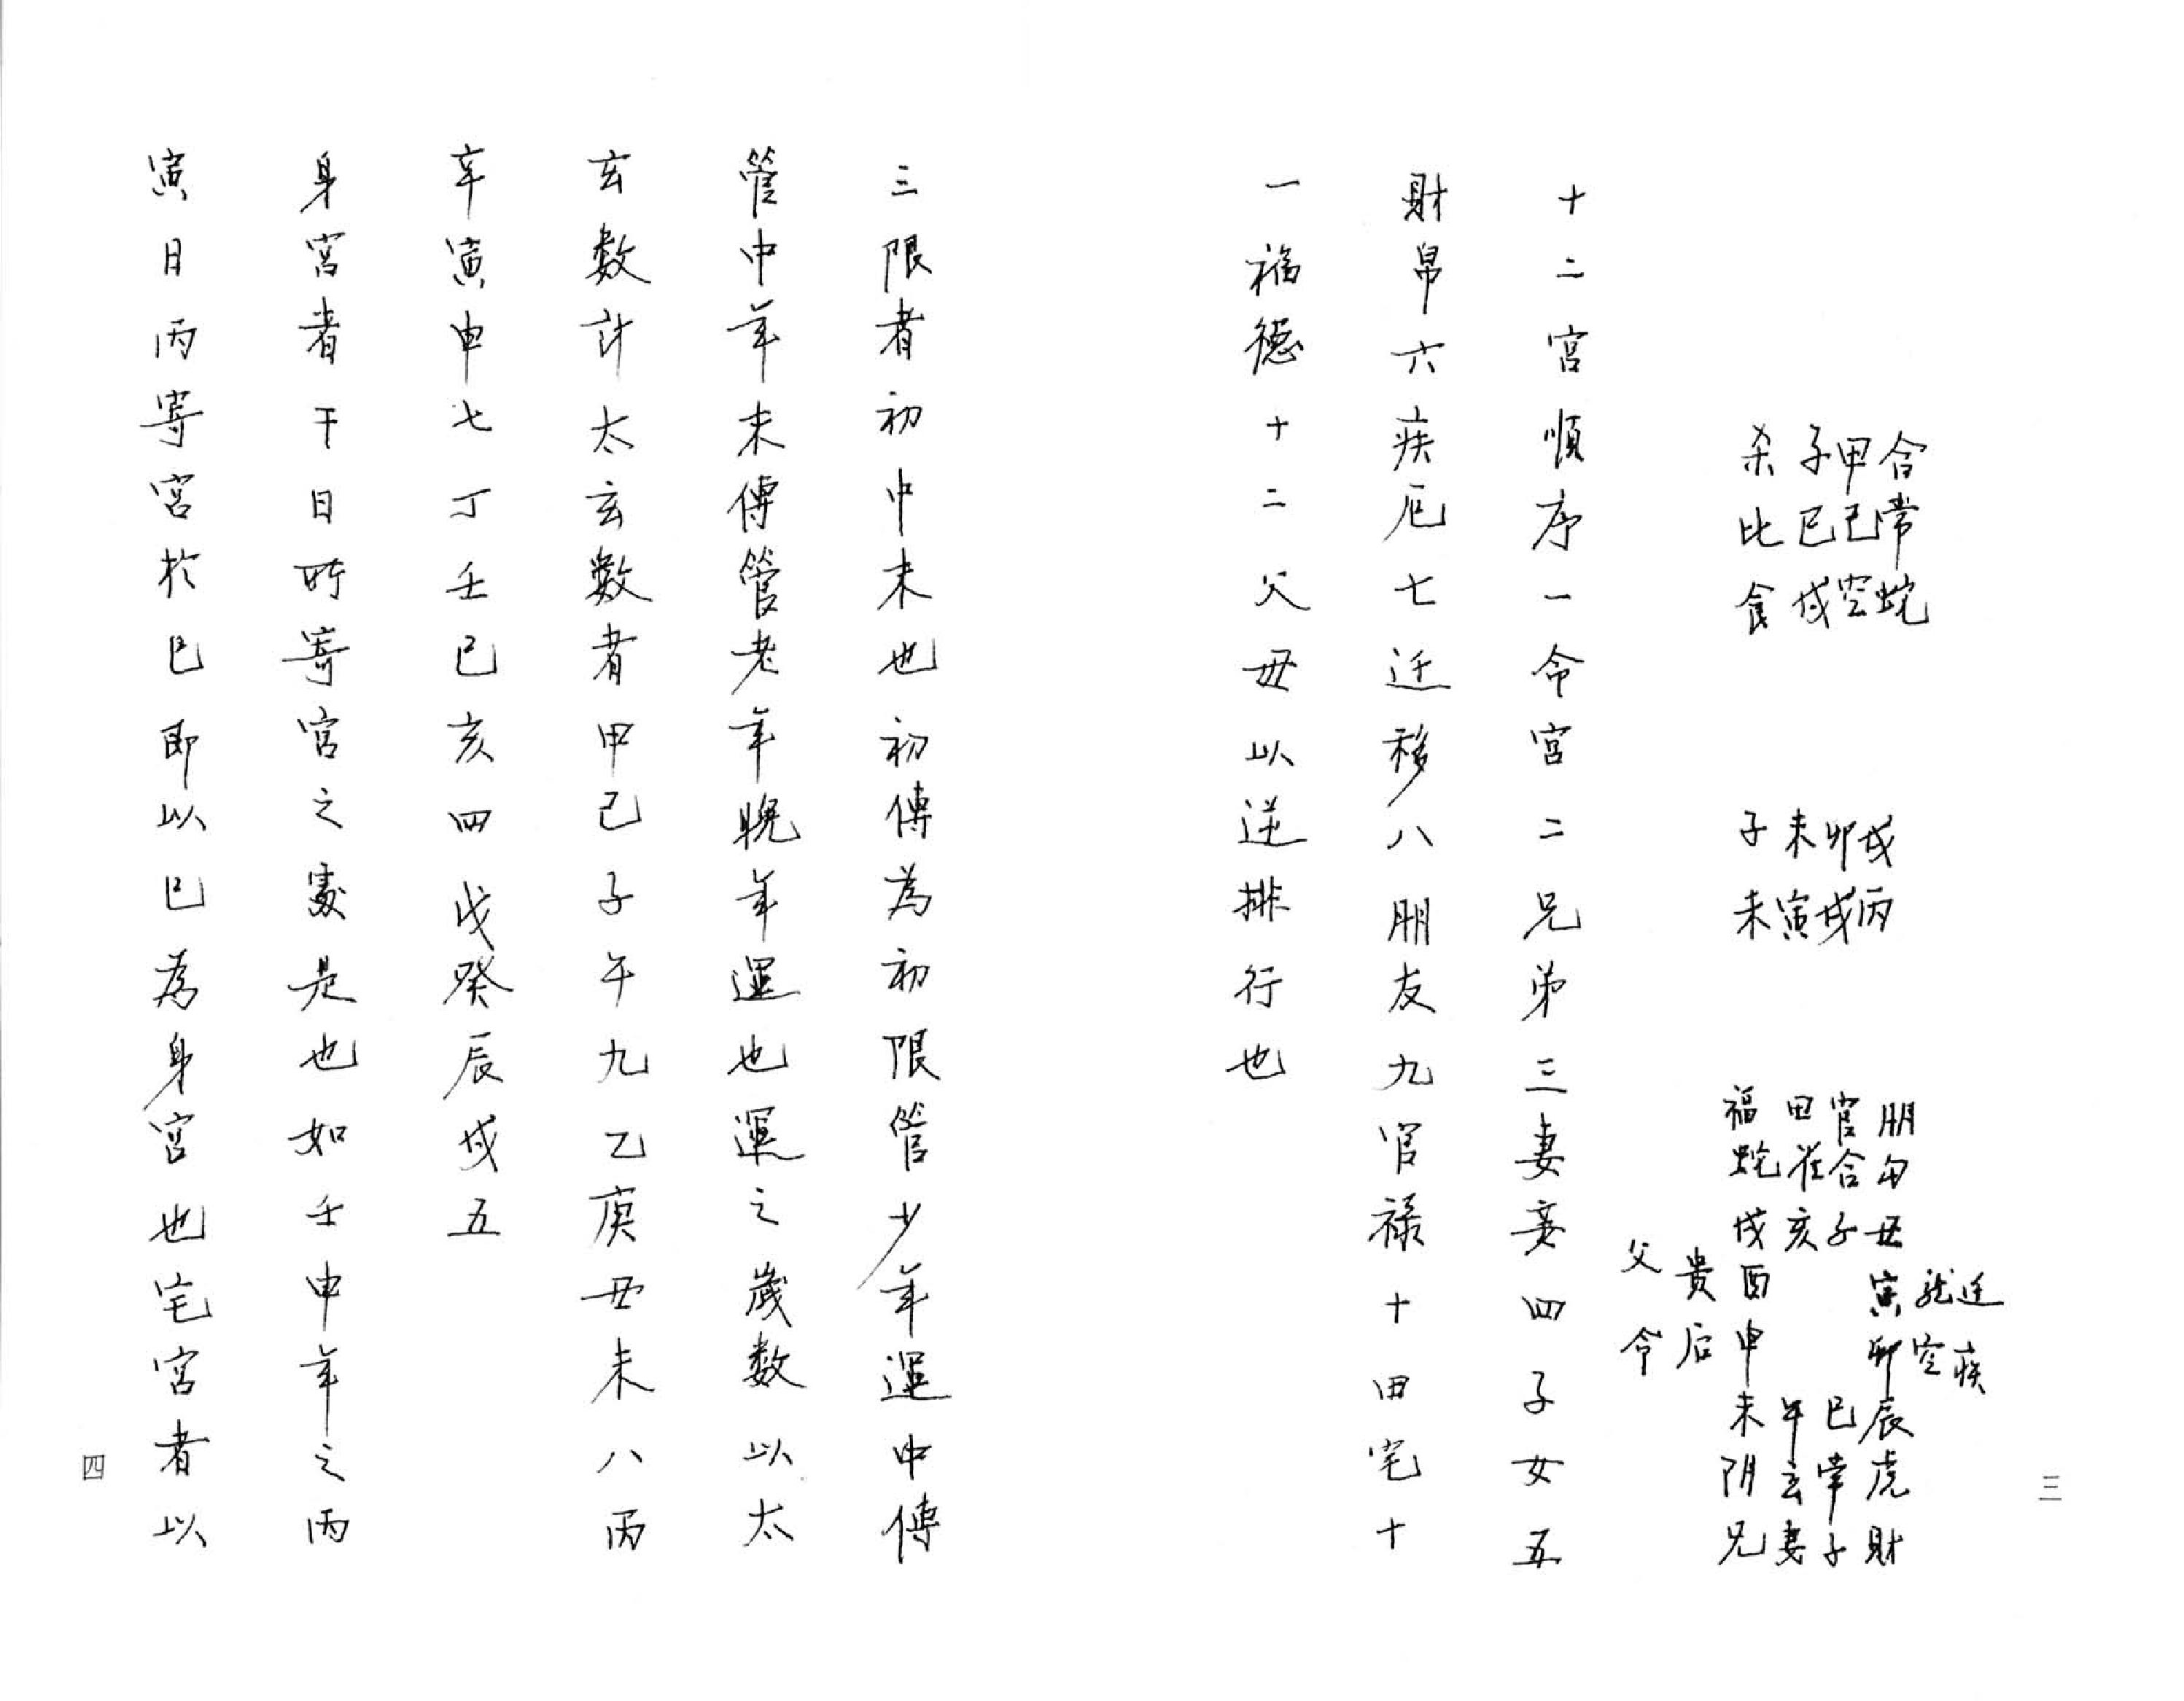 三
合常蛇
甲己空
子巳戌
杀比食
戌丙
卯戌
未寅
子未
迁疾
龙空
朋勾丑寅卯辰虎財
官合子 巳常子
田雀亥 午玄妻
福蛇戌酉申未阴兄
貴后
父命
十二宮順序一命宮二兄弟三妻妾四子女五
財帛六疾厄七迁移八朋友九官禄十田宅十
一福德十二父母以逆排行也
三限者初中末也初傳為初限管少年運中傳
管中年末傳管老年晚年運也運之歲数以太
玄数計太玄數者甲己子午九乙庚丑未八丙
辛寅申七丁壬巳亥四戊癸辰戌五
身宮者干日所寄宮之處是也如壬申年之丙
寅日丙寄宮於巳即以巳為身宮也宅宮者以
四